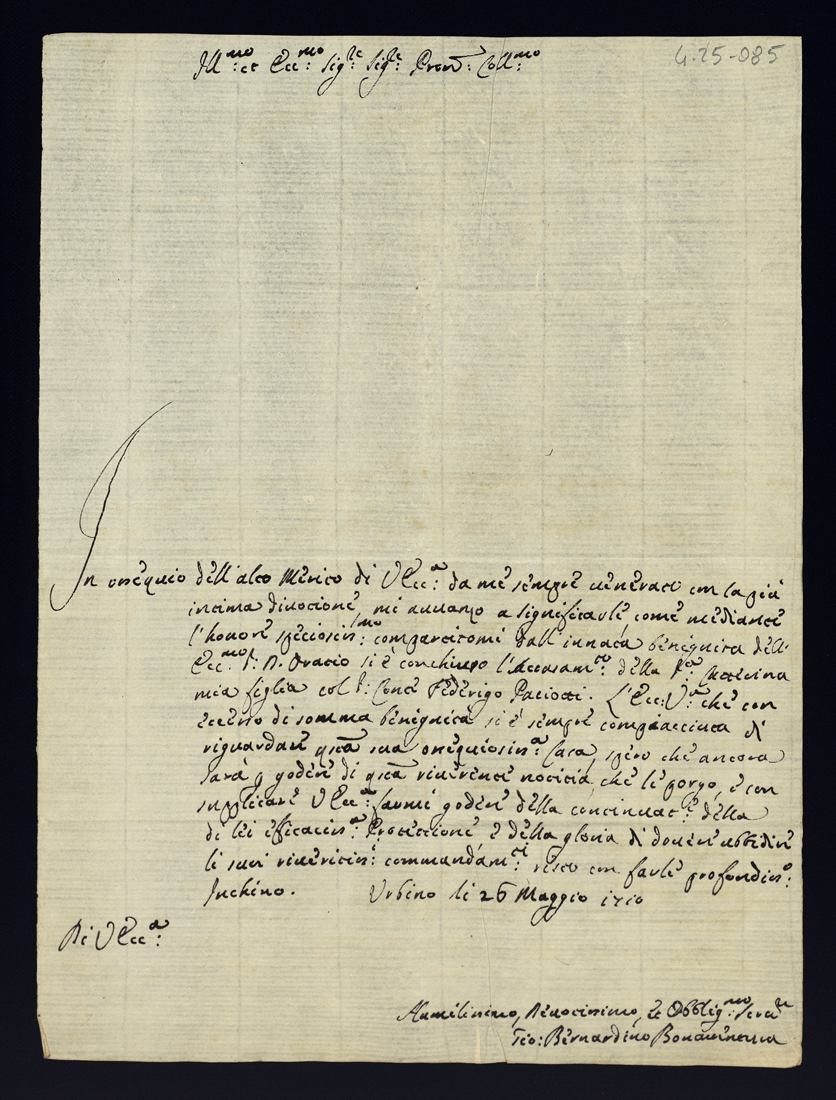 Ill.mo et Ecc.mo Sig.re Sig.re Pron. Coll.mo
4.25-085
In ossequio dell'alto Merito di V Ecc.a da me sempre venerato con la più
intima divotione, mi avvanzo a significarle come mediante
l'honore speciosiss.mo compartitomi dall'innata benignità dell'
Ecc.mo S. D. Oratio si è conchiuso l'Accasam.to della S.ra
mia figlia col S. Conte Federigo Paciotti. L'Ecc: V.ra che con
eccesso di somma benignità si è sempre compiacciuta di
riguardare q.sta sua ossequiosiss.a Casa, spero che ancora
sarà p godere di q.sta riverente notitia, che le porgo, e con
supplicare V Ecc.a farmi godere della continuat.e della
di lei efficaciss.a Protettione e della gloria di dover ubbidire
li suoi riveritiss.i commandam.ti resto con farle profondiss.o
Inchino. Urbino li 26 Maggio 1710
Di V Ecc.a
Humilissimo, Devotissimo, et Obblig.mo Serv.re
Bernardino Bonaventura